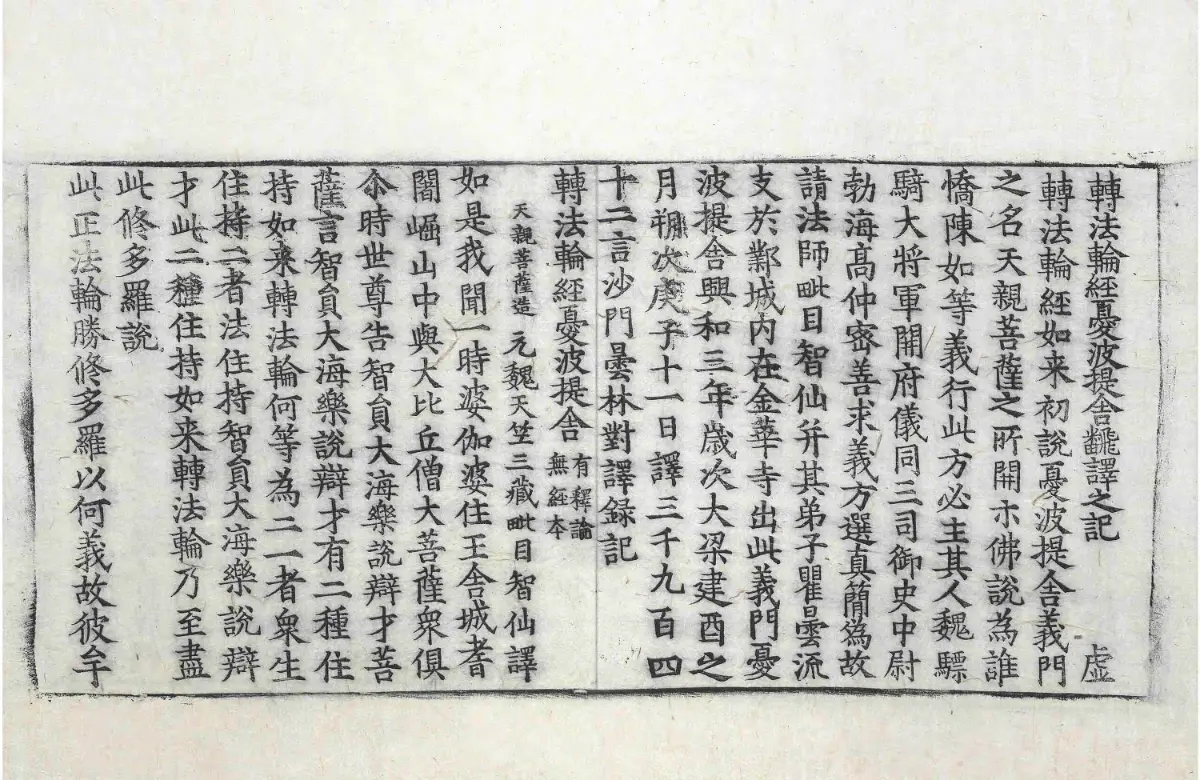 轉法輪經憂波提舍飜譯之記 虛
轉法輪經如来初說憂波提舍義門
之名天親菩薩之所開示佛說為誰
憍陳如等義行此方必主其人魏驃
騎大將軍開府儀同三司御史中尉
勃海高仲密善求義方選真簡為故
請法師毗目智仙并其弟子瞿曇流
支於鄴城內在金華寺出此義門憂
波提舍興和三年歲次大梁建酉之
月朔次庚子十一日譯三千九百四
十二言沙門曇林對譯録記
轉法輪經憂波提舍 有釋論
無經本
天親菩薩造 元魏天竺三藏毗目智仙譯
如是我聞一時婆伽婆住王舍城耆
闍崛山中與大比丘僧大菩薩衆俱
尒時世尊告智員大海樂說辯才菩
薩言智員大海樂說辯才有二種住
持如来轉法輪何等為二一者衆生
住持二者法住持智員大海樂說辯
才此二種住持如来轉法輪乃至盡
此修多羅說
此正法輪勝修多羅以何義故彼牟